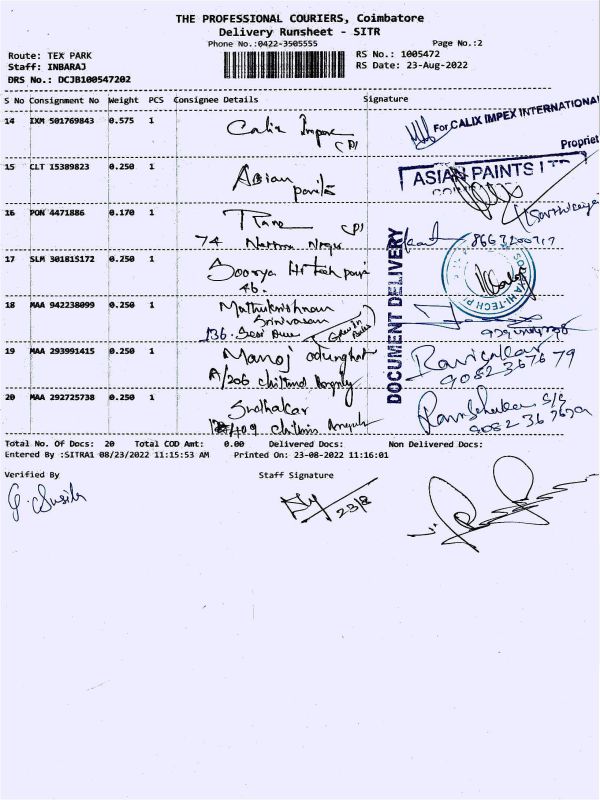 THE PROFESSIONAL COURIERS, Coimbatore
Delivery Runsheet - SITR
Phone No.:0422-3505555
Page No.:2
Route: TEX PARK
RS No.: 1005472
Staff: INBARAJ
RS Date: 23-Aug-2022
DRS No.: DCJB100547202
S No Consignment No Weight PCS Consignee Details Signature
14 IXM 501769843 0.575 1 Calix
For CALIX IMPEX INTERNATIONAL
Propriet
15 CLT 15389823 0.250 1 Asian paints
ASIAN PAINTS
16 PON 4471886 0.170 1
74
17 SLM 301815172 0.250 1 Soorya Hi tech
46.
18 MAA 942238099 0.250 1 Muthukrishnan
Srinivasan
136.
19 MAA 293991415 0.250 1 Manoj
A/206
9082367679
20 MAA 292725738 0.250 1 Sudhakar
9082367679
DOCUMENT DELIVERY
Total No. Of Docs: 20 Total COD Amt: 0.00 Delivered Docs: Non Delivered Docs:
Entered By :SITRA1 08/23/2022 11:15:53 AM Printed On: 23-08-2022 11:16:01
Verified By Staff Signature
G. Susila
23/8